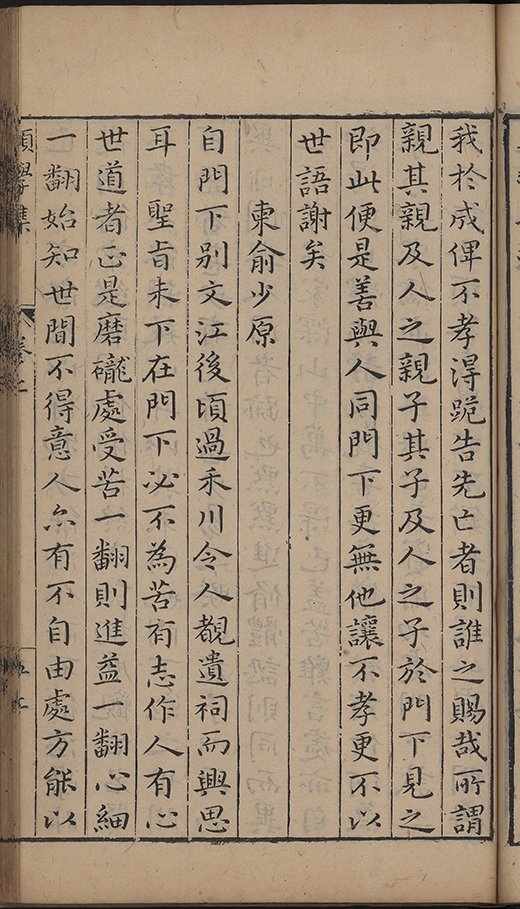 我於成俾不孝得跪告先亡者則誰之賜哉所謂
親其親及人之親子其子及人之子於門下見之
即此便是善與人同門下更無他讓不孝更不以
世語謝矣
柬俞少原
自門下別文江後頃過禾川令人覩遺祠而興思
耳聖旨未下在門下必不為苦有志作人有心
世道者正是磨礲處受苦一翻則進益一翻心細
一翻始知世間不得意人亦有不自由處方能以
願學集